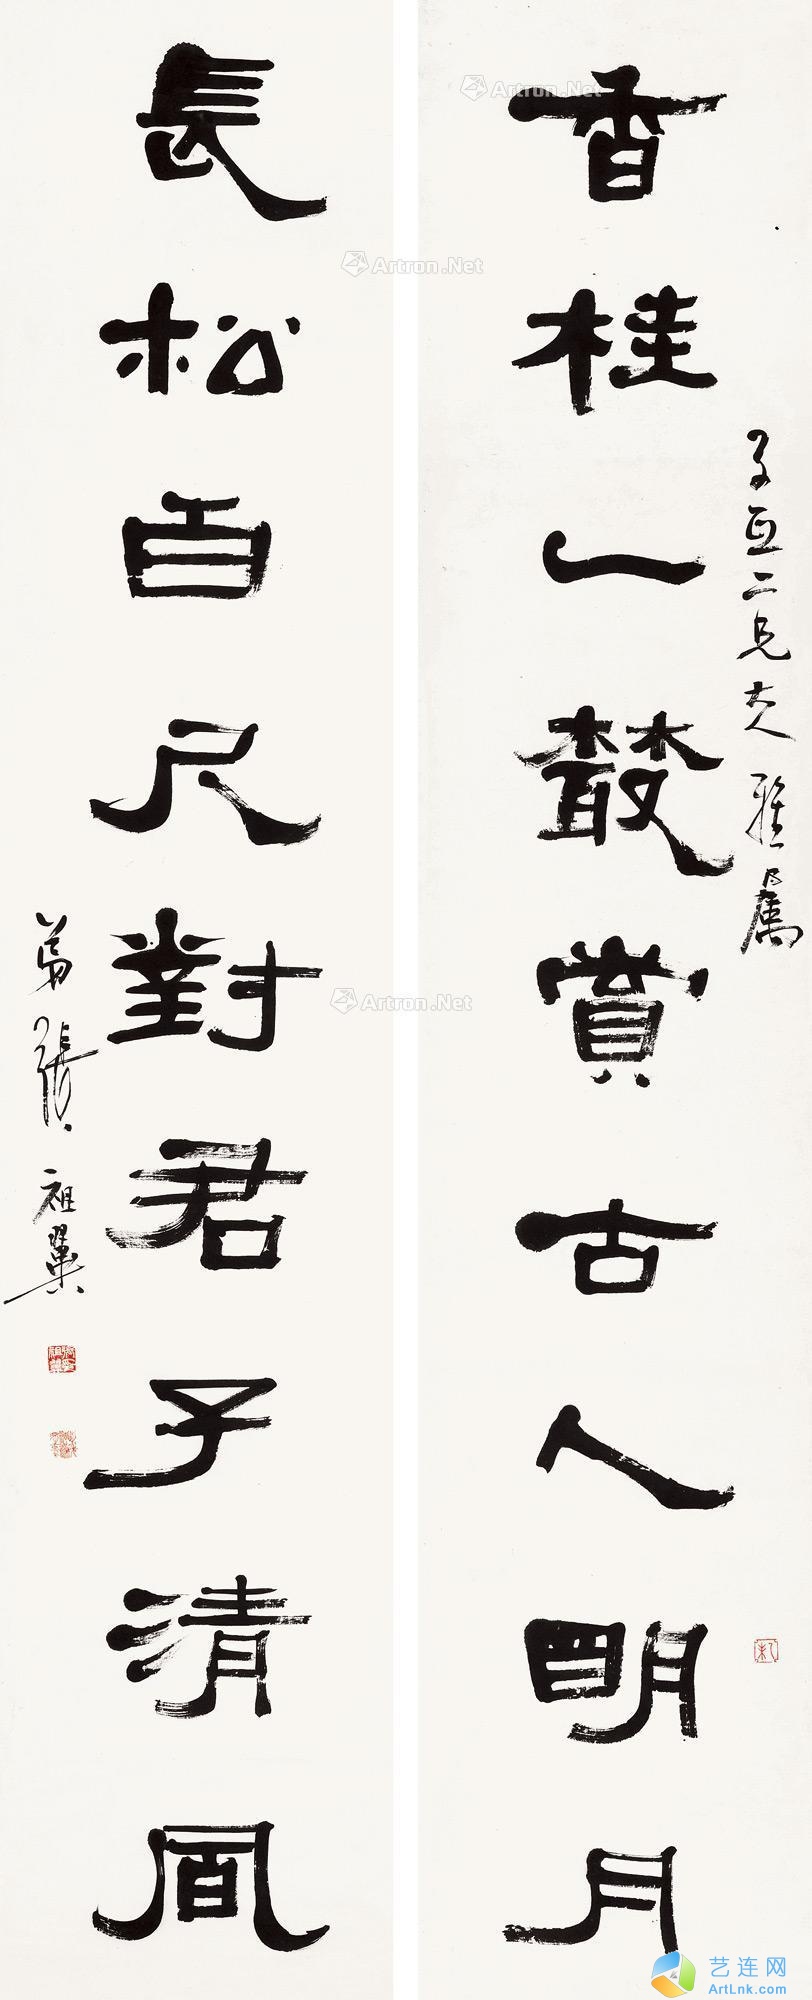 香桂一叢賞古人明月
子亙二兄大人雅屬
長松百尺對君子清風
弟張祖翼
Artron.Net
Artron.Net
Artron.Net
艺连网
ArtLnk.com